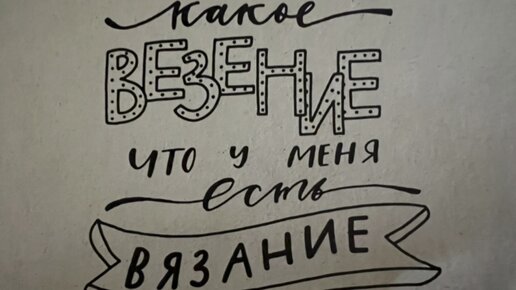 какое
ВЕЗЕНИЕ
ЧТО У МЕНЯ
есть
ВЯЗАНИЕ